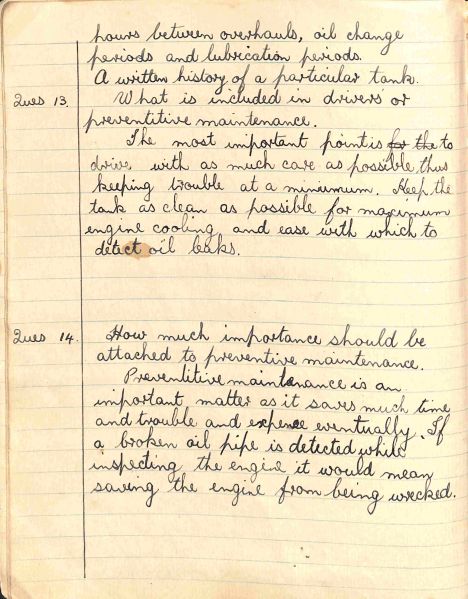 hours between overhauls, oil change
periods and lubrication periods.
A written history of a particular tank.
Ques 13. What is included in drivers or
preventitive maintenance.
The most important point is for the to
drive, with as much care as possible thus
keeping trouble at a minumum. Keep the
tank as clean as possible for maximum
engine cooling and ease with which to
detect oil leaks.
Ques 14. How much importance should be
attached to preventive maintenance.
Preventitive maintenance is an
important matter as it saves much time
and trouble and expence eventually. If
a broken oil pipe is detected while
inspecting the engine it would mean
saving the engine from being wrecked.